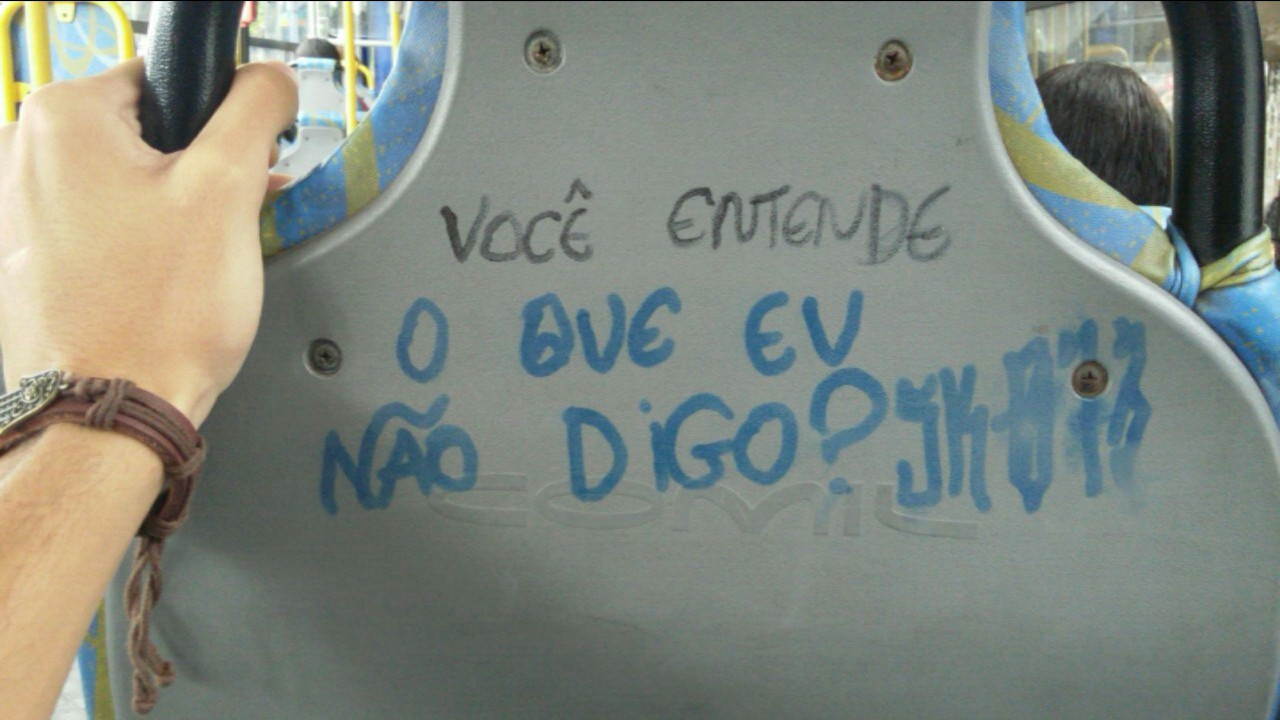 VOCÊ ENTENDE
O QUE EU
NÃO DIGO?
COMIL